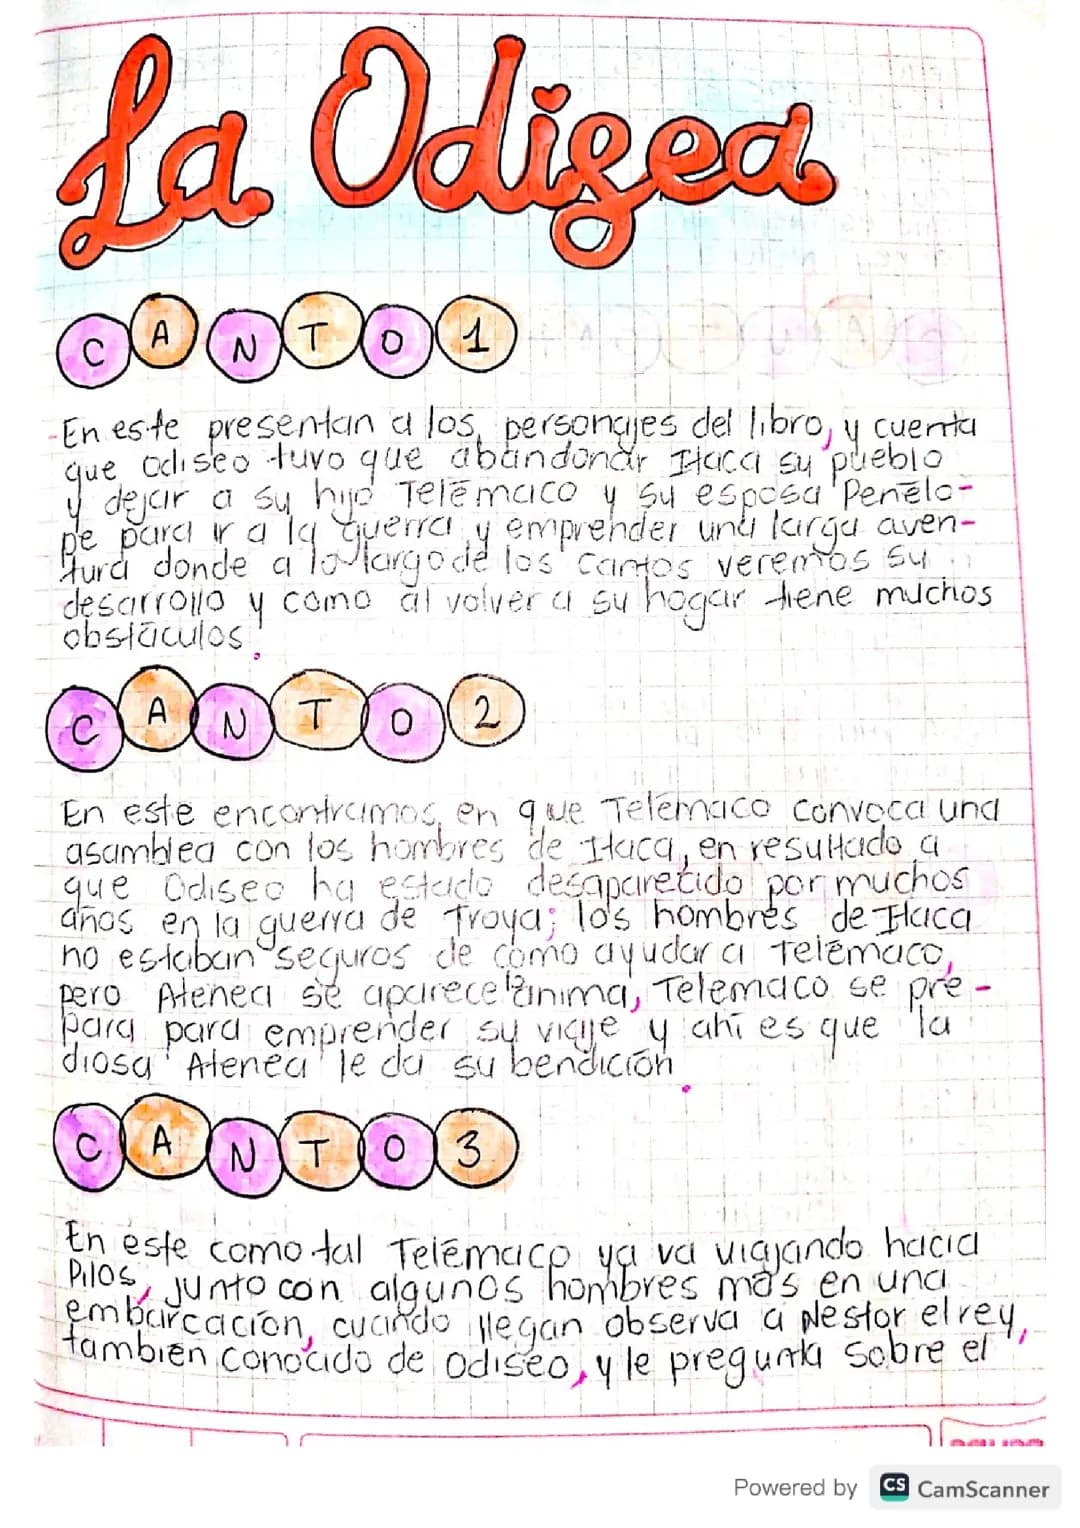 La Odisea
CANTO 1
-En este presentan a los personajes del libro, y cuenta
que Odiseo tuvo que abandonar Itaca su pueblo
y dejar a su hijo Telémaco y su esposa Penélo-
pe para ir a la guerra y emprender una larga aven-
tura donde a lo largo de los cantos veremos su
desarrollo y como al volver a su hogar tiene muchos
obstáculos.
CANTO 2
En este encontramos en que Telémaco convoca una
asamblea con los hombres de Itaca, en resultado a
que Odiseo ha estado desaparecido por muchos
años en la guerra de Troya; los hombres de Itaca
no estaban seguros de como ayudar a Telémaco,
pero Atenea se aparece anima, Telemaco se pre-
para para emprender su viaje y ahí es que la
diosa Atenea le da su bendición.
CANTO 3
En este como tal Telémaco ya va viajando hacia
Pilos, junto con algunos hombres más en una
embarcación, cuando llegan observa a Nestor el rey,
también conocido de Odiseo, y le pregunta sobre el
Powered by CS CamScanner